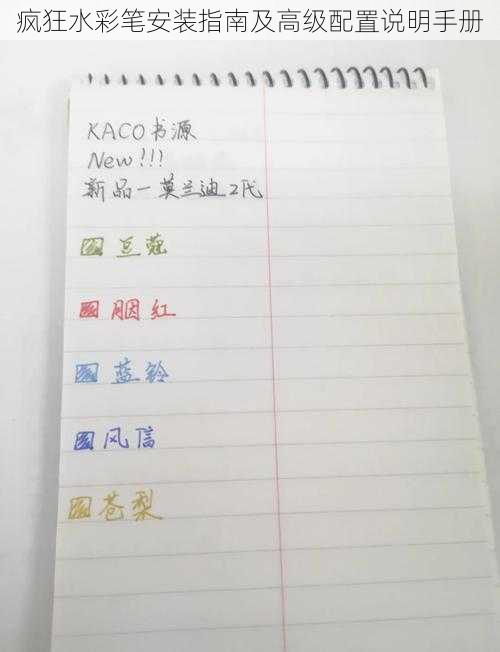 疯狂水彩笔安装指南及高级配置说明手册
KACO书源
New!!!
新品一莫兰迪2代
豆蔻
胭红
蓝铃
风信
苍梨